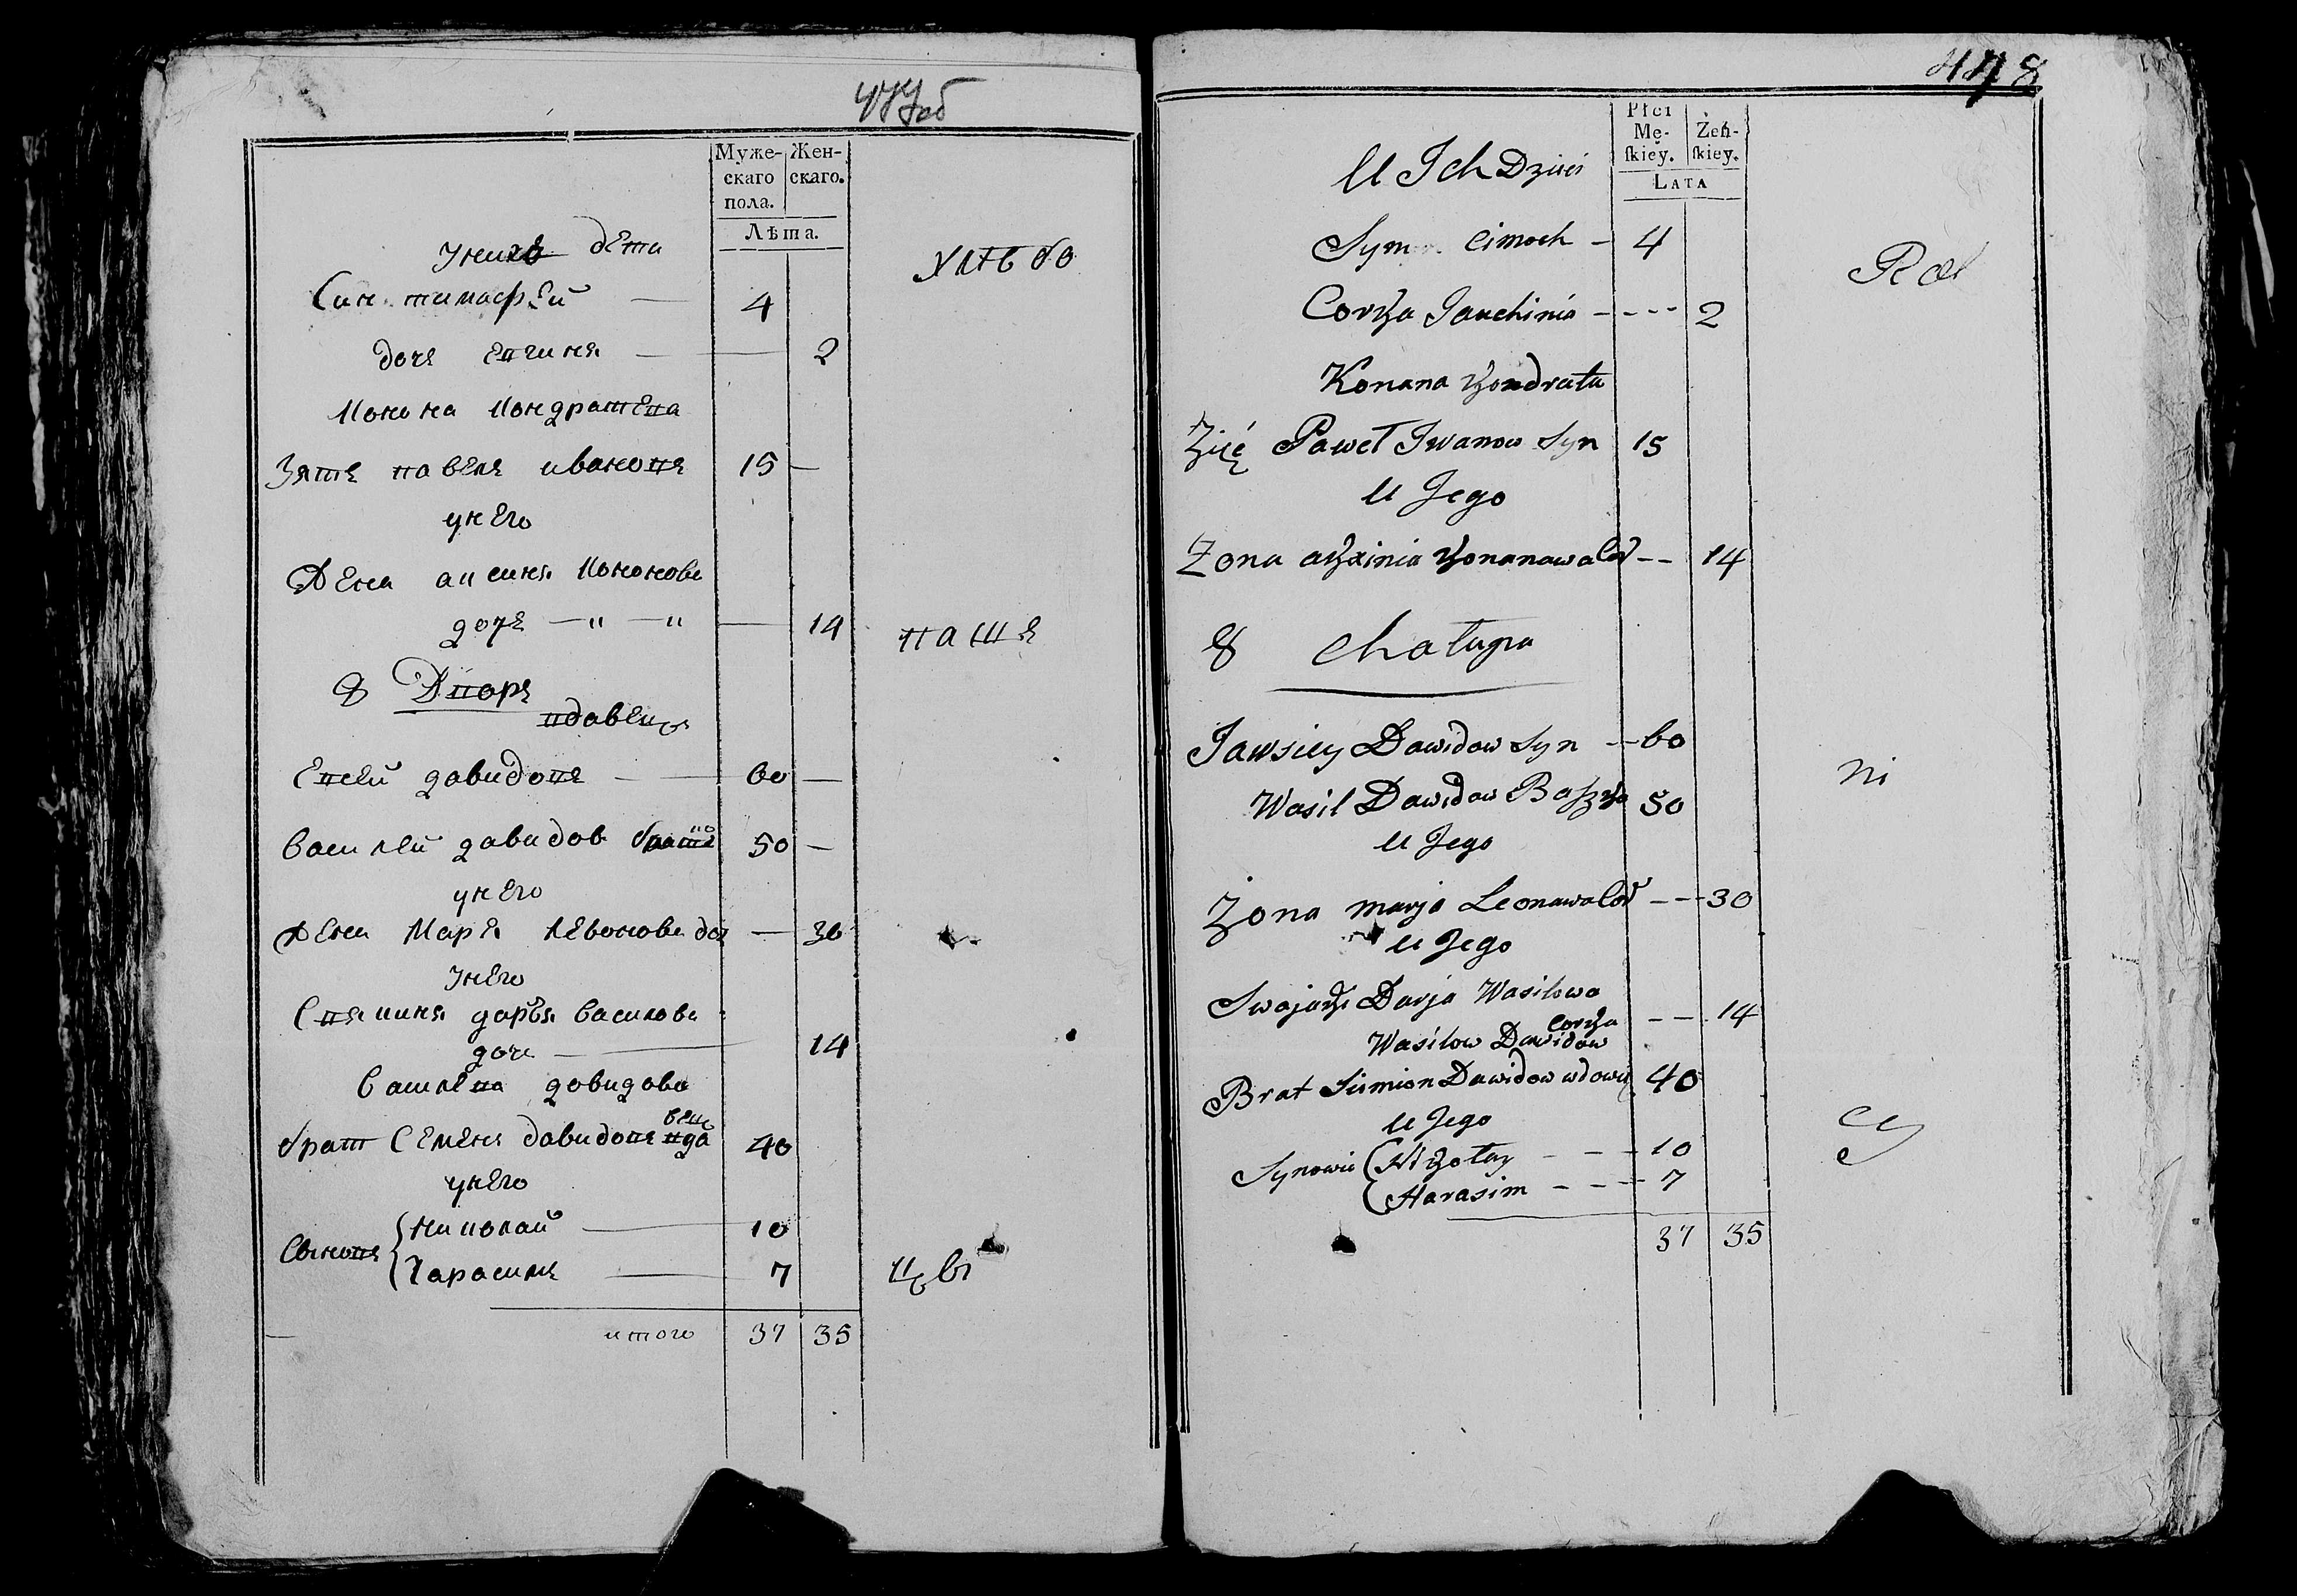 477об
Муже-
скаго
пола.
Жен-
скаго.
Лѣта.
Унихъ дети
Син тимафей — 4
дочь евгиня — 2
Конона Кондратева
Зять павель ивановъ 15 —
унего
Жена аксиня Кононова
дочь — 14
8 Дворъ
вдавец
Евсей давидовъ — 60 —
Василей давидов братъ 50 —
унего
Жена Марья Левонова доч — 30
Унего
Свячиня дарья василова
дочь — 14
Василева давидова
братъ Семенъ давидовъ вдавец 40
унего
Сыновя { Николай — 10
{ Гарасимъ — 7
итого 37 35
хлѣбо
паше
цы
478
Płci
Mę-
skiey.
Żeń-
skiey.
LATA
U Ich Dzieci
Syn Cimoch - 4
Corka Jauchinia - - - - 2
Konana Kondrata
Zięć Paweł Iwanow Syn 15
U Jego
Zona akxinia Konanawa Cor -- 14
8 Chałupa
Jawsiey Dawidow Syn -- 60
Wasil Dawidow 50
U Jego
Zona marja Leonawa Cor -- 30
U Jego
Darja Wasilowa
Corka -- 14
Wasilow Dawidow
Brat Siemion Dawidow wdowiec 40
U Jego
Synowie ( Nikołay - - - 10
( Harasim - - - 7
37 35
Rol
ni
cy